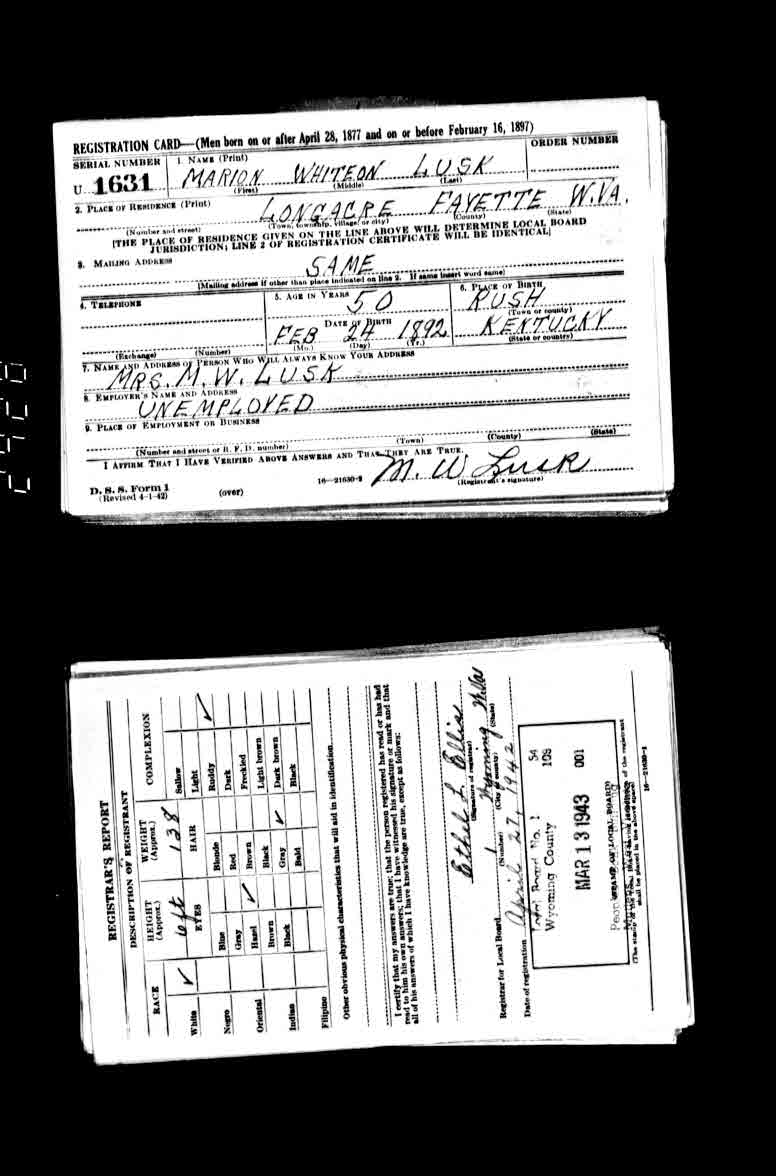 REGISTRATION CARD—(Men born on or after April 28, 1877 and on or before February 16, 1897)
SERIAL NUMBER 1. NAME (Print) ORDER NUMBER
U 1631 MARION WHITEON LUSK
(First) (Middle) (Last)
2. PLACE OF RESIDENCE (Print)
LONGACRE FAYETTE W.VA.
(Number and street) (Town, township, village, or city) (County) (State)
[THE PLACE OF RESIDENCE GIVEN ON THE LINE ABOVE WILL DETERMINE LOCAL BOARD
JURISDICTION; LINE 2 OF REGISTRATION CERTIFICATE WILL BE IDENTICAL]
3. MAILING ADDRESS
SAME
[Mailing address if other than place indicated on line 2. If same insert word same]
4. TELEPHONE 5. AGE IN YEARS 6. PLACE OF BIRTH
50 RUSH
(Town or county)
DATE OF BIRTH
FEB 24 1892 KENTUCKY
(Exchange) (Number) (Mo.) (Day) (Yr.) (State or country)
7. NAME AND ADDRESS OF PERSON WHO WILL ALWAYS KNOW YOUR ADDRESS
MRS. M. W. LUSK
8. EMPLOYER'S NAME AND ADDRESS
UNEMPLOYED
9. PLACE OF EMPLOYMENT OR BUSINESS
(Number and street or R. F. D. number) (Town) (County) (State)
I AFFIRM THAT I HAVE VERIFIED ABOVE ANSWERS AND THAT THEY ARE TRUE.
M. W Lusk
D. S. S. Form 1
(Revised 4-1-42) (over) 16—21630-2 (Registrant's signature)
REGISTRAR'S REPORT
DESCRIPTION OF REGISTRANT
RACE HEIGHT (Approx.) WEIGHT (Approx.) COMPLEXION
6 ft 138
EYES HAIR
White ✓
Negro
Oriental
Indian
Filipino
Blue
Gray
Hazel ✓
Brown
Black
Blonde
Red
Brown
Black
Gray ✓
Bald
Sallow
Light
Ruddy ✓
Dark
Freckled
Light brown
Dark brown
Black
Other obvious physical characteristics that will aid in identification
I certify that my answers are true; that the person registered has read or has had
read to him his own answers; that I have witnessed his signature or mark and that
all of his answers of which I have knowledge are true, except as follows:
Ethel L. Ellis
(Signature of registrar)
Registrar for Local Board 1 Wyoming W.Va
(Number) (City or county) (State)
Date of registration April 27, 1942
Local Board No. 1 54
Wyoming County 109
MAR 13 1943 001
(STAMP OF LOCAL BOARD)
(The stamp of the Local Board of the registrant
shall be placed in the above space)
16—21630-1